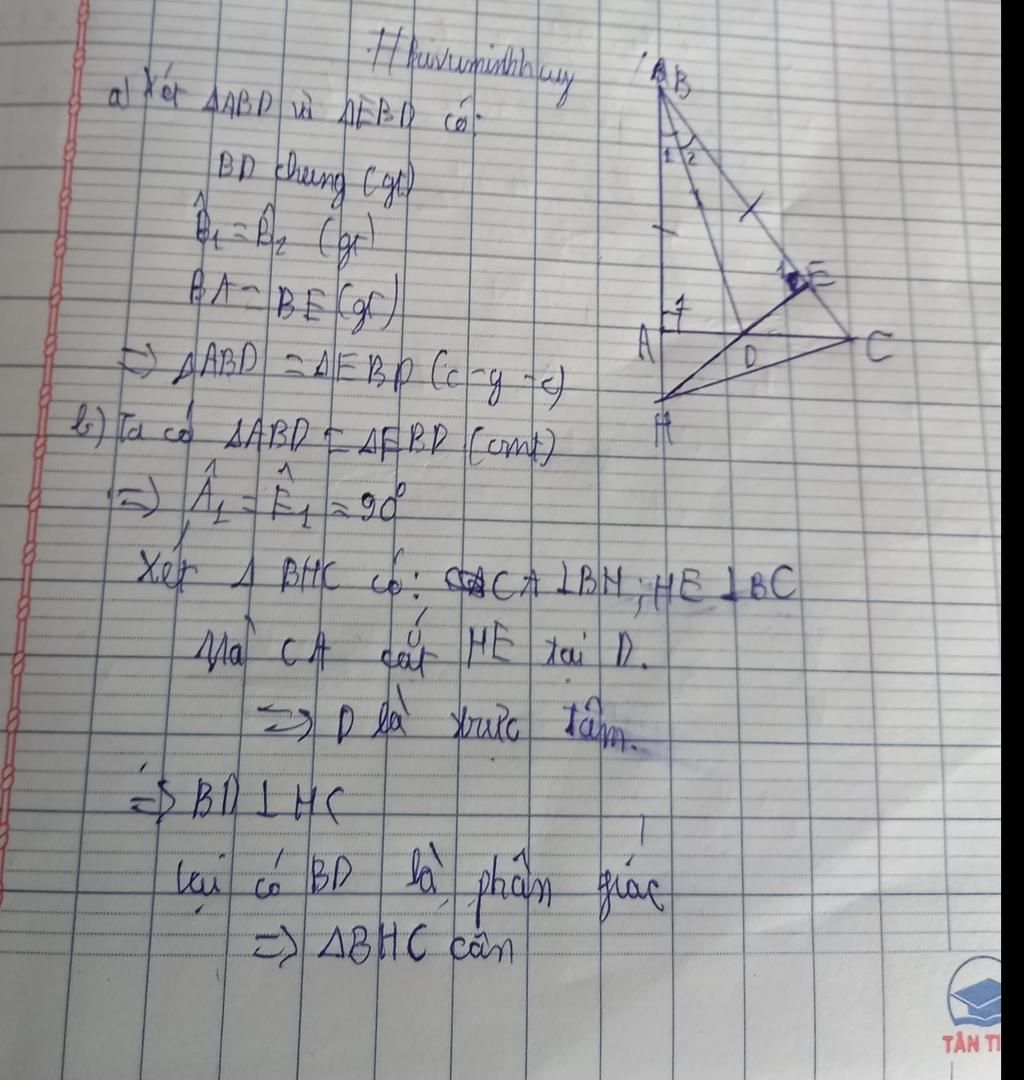 Huivuminhhuy
a) Xét ΔABD và ΔEBD có:
BD chung (gt)
B̂₁ = B̂₂ (gt)
BA = BE (gt)
=> ΔABD = ΔEBD (c-g-c)
b) Ta có ΔABD = ΔEBD (cmt)
=> Â₁ = Ê₁ = 90°
Xét Δ BHC có: CA ⊥ BH; HE ⊥ BC
Mà CA cắt HE tại D.
=> D là trực tâm.
=> BD ⊥ HC
lại có BD là phân giác
=> ΔBHC cân
B
1 2
1 E
A 1
D
C
H
TÂN